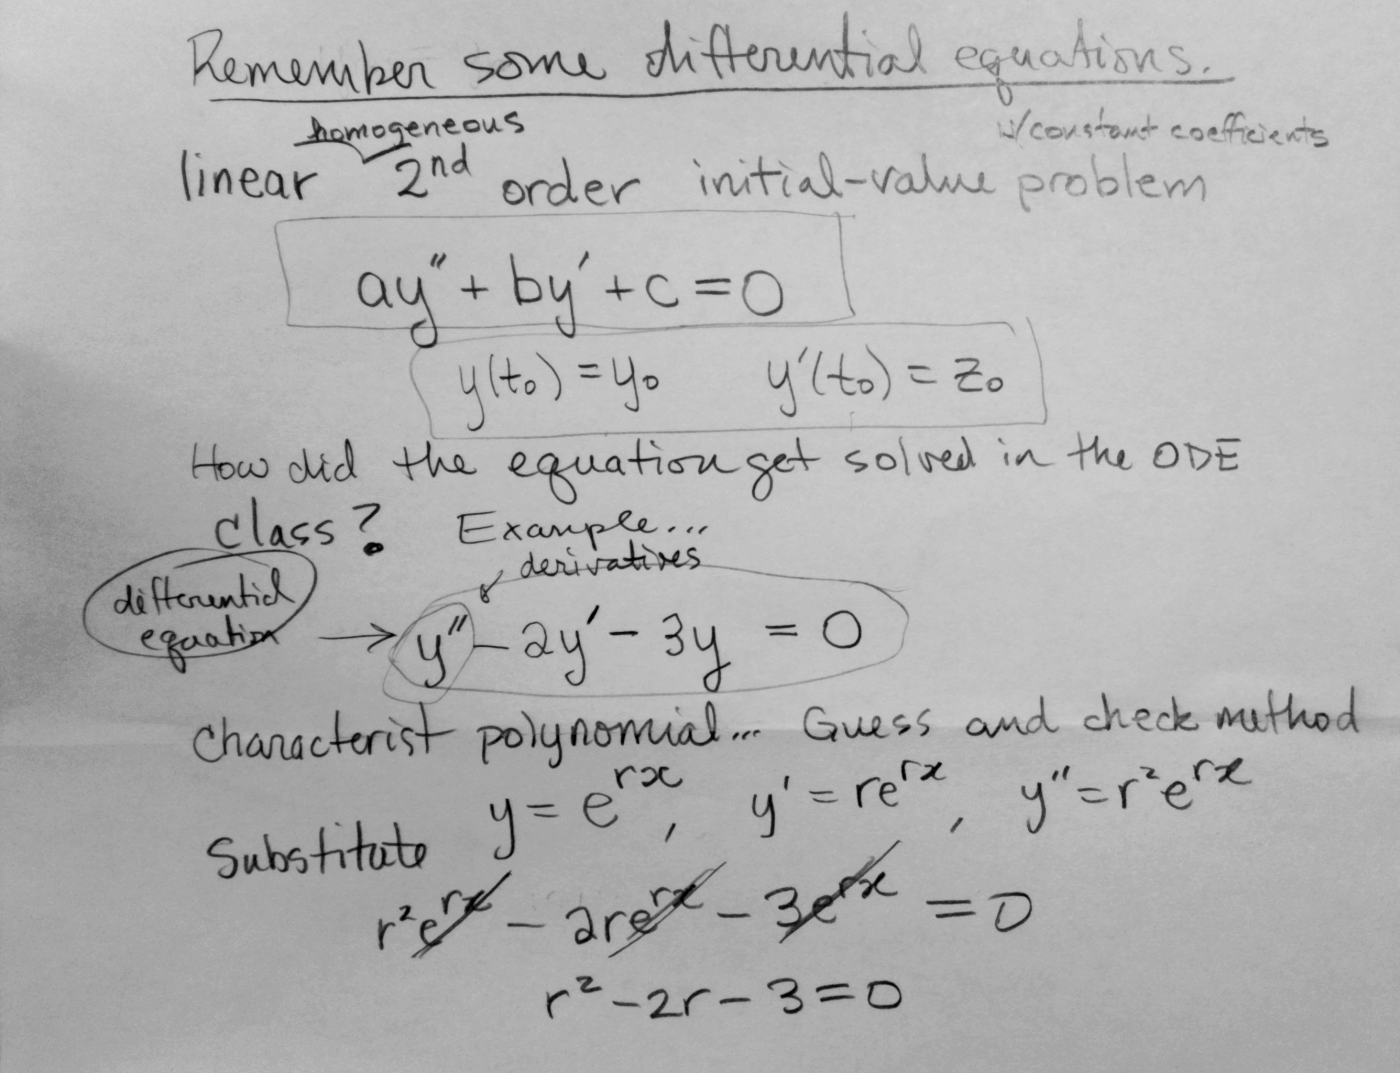 Remember some differential equations.
homogeneous
w/constant coefficients
linear 2nd order initial-value problem
ay" + by' + c = 0
y(t₀) = y₀ y'(t₀) = z₀
How did the equation get solved in the ODE
class? Example...
derivatives
differential
equation → y" - 2y' - 3y = 0
Characterist polynomial... Guess and check method
y = e^{rx}, y' = re^{rx}, y" = r²e^{rx}
Substitute
r²e^{rx} - 2re^{rx} - 3e^{rx} = 0
r² - 2r - 3 = 0